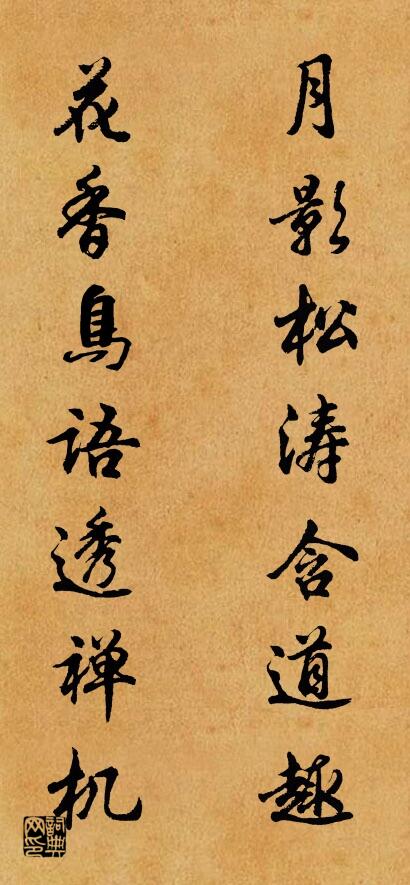 月影松涛含道趣
花香鳥語透禅机
詞典网印